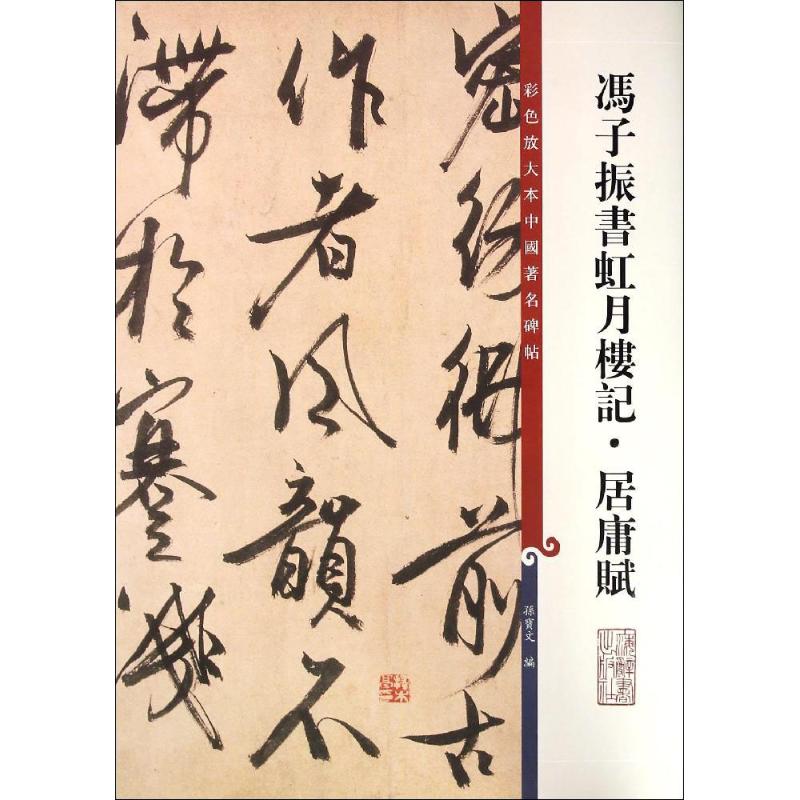 馮子振書虹月樓記·居庸賦
彩色放大本中國著名碑帖
孫寶文 編
上海辭書
出版社
前古
作者風韻不
滯於蹇